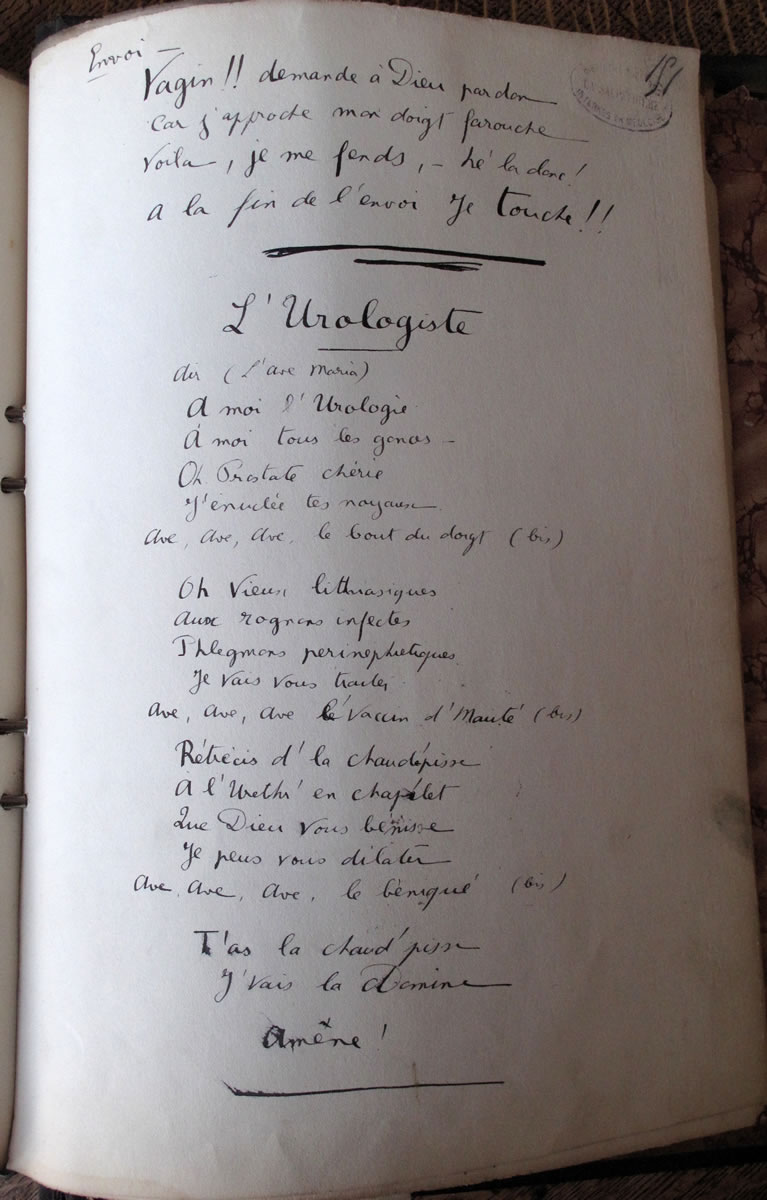 Envoi –
Vagin!! demande à Dieu pardon
Car j'approche mon doigt farouche
Voila, je me fends, – hé la donc!
a la fin de l'envoi Je touche!!
151
L'Urologiste
air (L'ave Maria)
A moi l'Urologie
A moi tous les gonos –
Oh Prostate chérie
J'énuclée tes noyaux
Ave, Ave, Ave, le bout du doigt (bis)
Oh Vieux lithiasiques
aux rognons infectes
Phlegmons perinephretiques
Je Vais vous traiter
Ave, Ave, Ave le Vaccin d'Mauté (bis)
Rétrécis d'la chaudépisse
A l'Urethr' en chapélet
Que Dieu vous bénisse
Je peus vous dilater
Ave, Ave, Ave, le béniqué (bis)
T'as la chaud'pisse
J'vais la Domine
Amène!